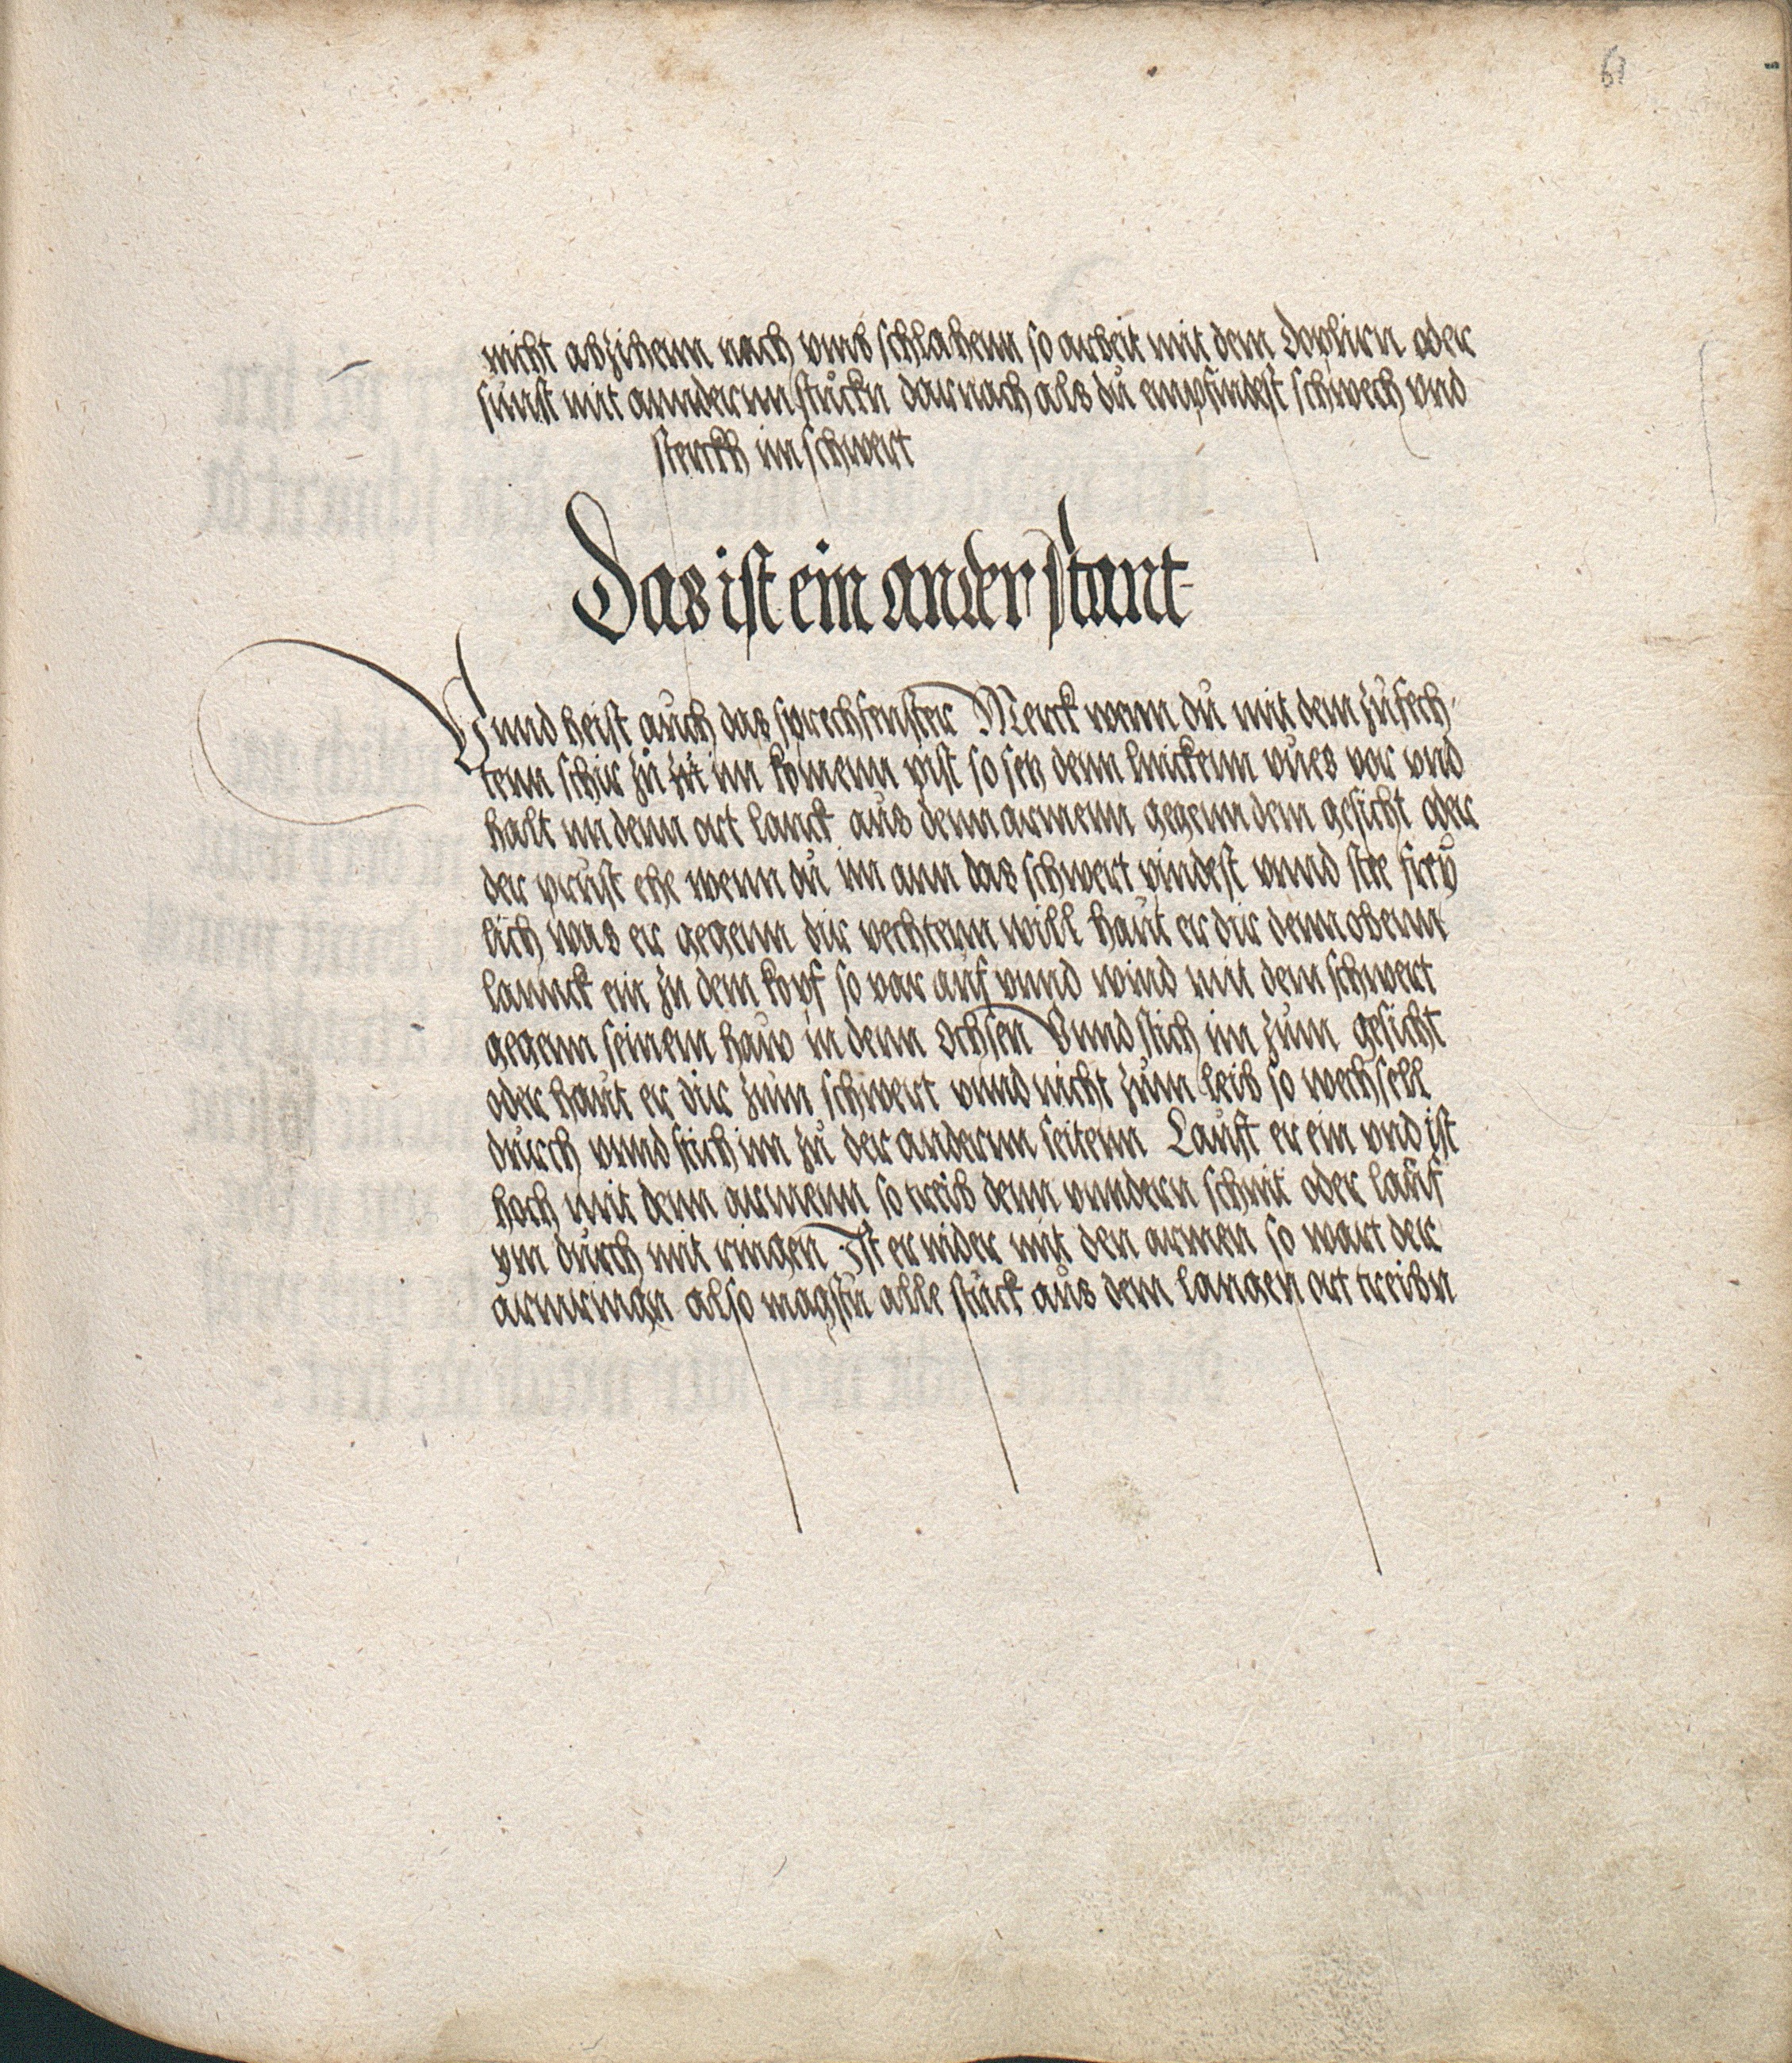 61
nicht abzihenn noch vmb schlahenn so arbeit mit dem doplirn oder
sunst mit anndernn stuckn darnach als du empfindest schwech vnd
sterckh im schwert
Das ist ein ander stant
Vnnd heist auch das sprechfenster Merck wenn du mit dem zufech-
tenn schir zu im komenn pist so setz denn linckenn vues vor vnd
halt im denn ort lanck aus denn armenn gegenn dem gesicht oder
der prust ehe wenn du im ann das schwert pindest vnnd stee frey
lich was er gegenn dir vechtenn will haut er dir denn obenn
lannck ein zu dem kopf so var auf vnnd wind mit dem schwert
gegenn seinem haw in denn ochsen Vnnd stich im zum gesicht
oder haut er dir zum schwert vnnd nicht zum leib so wechsell
durch vnnd stich im zu der andernn seitenn Lauft er ein vnd ist
hoch mit denn armenn so treib denn vnndern schnit oder lauf
ym durch mit ringen Ist er nider mit den armen so wart der
armringn also magstu alle stuck aus dem langen ort treibn